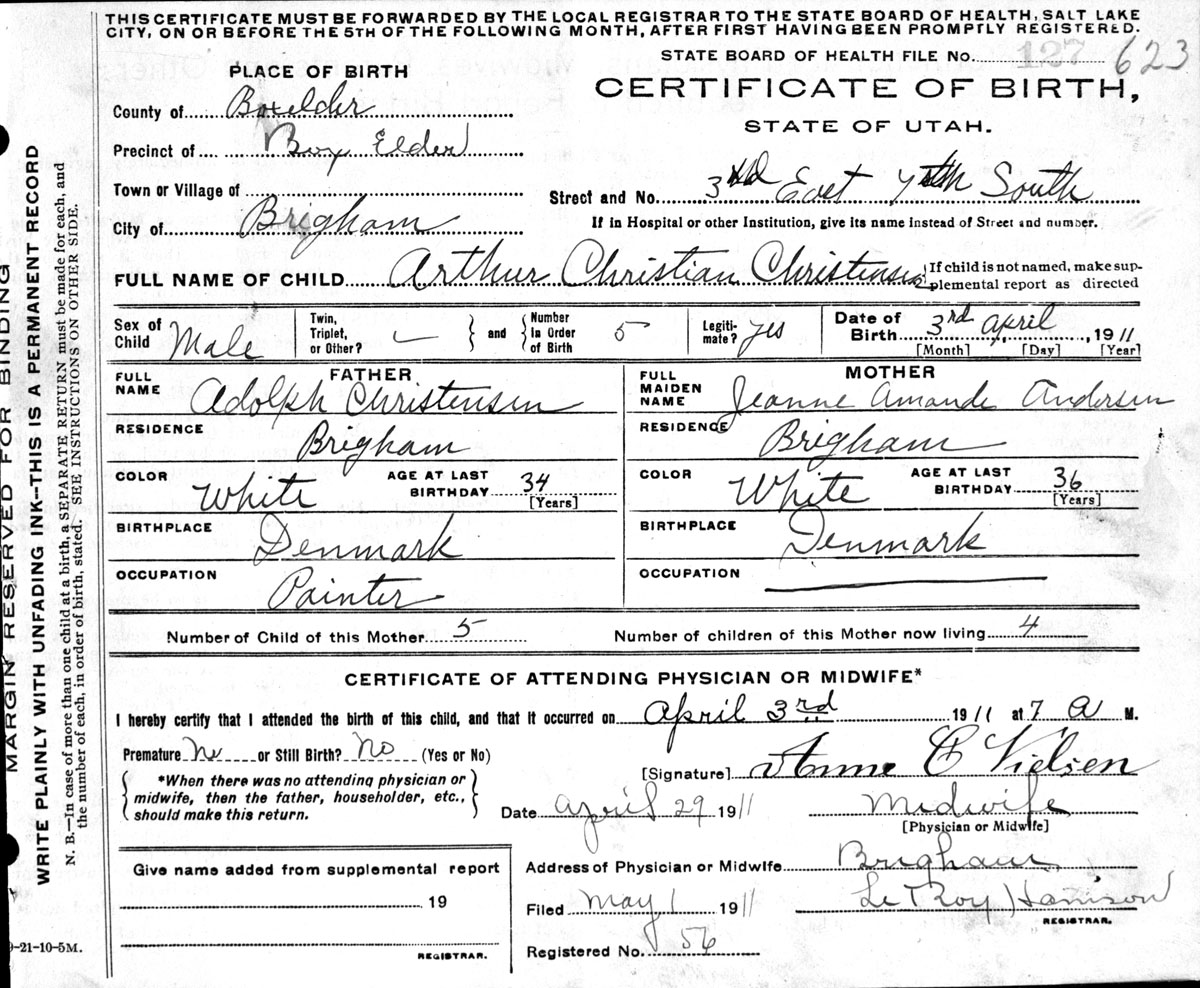 THIS CERTIFICATE MUST BE FORWARDED BY THE LOCAL REGISTRAR TO THE STATE BOARD OF HEALTH, SALT LAKE
CITY, ON OR BEFORE THE 5TH OF THE FOLLOWING MONTH, AFTER FIRST HAVING BEEN PROMPTLY REGISTERED.
STATE BOARD OF HEALTH FILE No. 127 623
PLACE OF BIRTH
CERTIFICATE OF BIRTH,
STATE OF UTAH.
County of Boxelder
Precinct of Box Elder
Town or Village of
Street and No. 3rd East 7th South
City of Brigham
If in Hospital or other Institution, give its name instead of Street and number.
FULL NAME OF CHILD Arthur Christian Christensen
{If child is not named, make sup-
plemental report as directed
Sex of Child Male
Twin, Triplet, or Other?
} and { Number in Order of Birth 5
Legiti-mate? yes
Date of Birth 3rd April, 1911
[Month] [Day] [Year]
FATHER
FULL NAME Adolph Christensen
RESIDENCE Brigham
COLOR White
AGE AT LAST BIRTHDAY 34
[Years]
BIRTHPLACE Denmark
OCCUPATION Painter
MOTHER
FULL MAIDEN NAME Jeanne Amande Andersen
RESIDENCE Brigham
COLOR White
AGE AT LAST BIRTHDAY 36
[Years]
BIRTHPLACE Denmark
OCCUPATION
Number of Child of this Mother 5
Number of children of this Mother now living 4
CERTIFICATE OF ATTENDING PHYSICIAN OR MIDWIFE*
I hereby certify that I attended the birth of this child, and that it occurred on April 3rd 1911 at 7 A M.
Premature No or Still Birth? No (Yes or No)
{ *When there was no attending physician or
midwife, then the father, householder, etc.,
should make this return. }
[Signature] Anne C Nielsen
Date April 29 1911
Midwife
[Physician or Midwife]
Address of Physician or Midwife Brigham
Filed May 1 1911
Le Roy Harrison
REGISTRAR.
Registered No. 56
Give name added from supplemental report
19
REGISTRAR.
9-21-10-5M.
MARGIN RESERVED FOR BINDING
WRITE PLAINLY WITH UNFADING INK—THIS IS A PERMANENT RECORD
N. B.—In case of more than one child at a birth, a SEPARATE RETURN must be made for each, and
the number of each, in order of birth, stated. SEE INSTRUCTIONS ON OTHER SIDE.